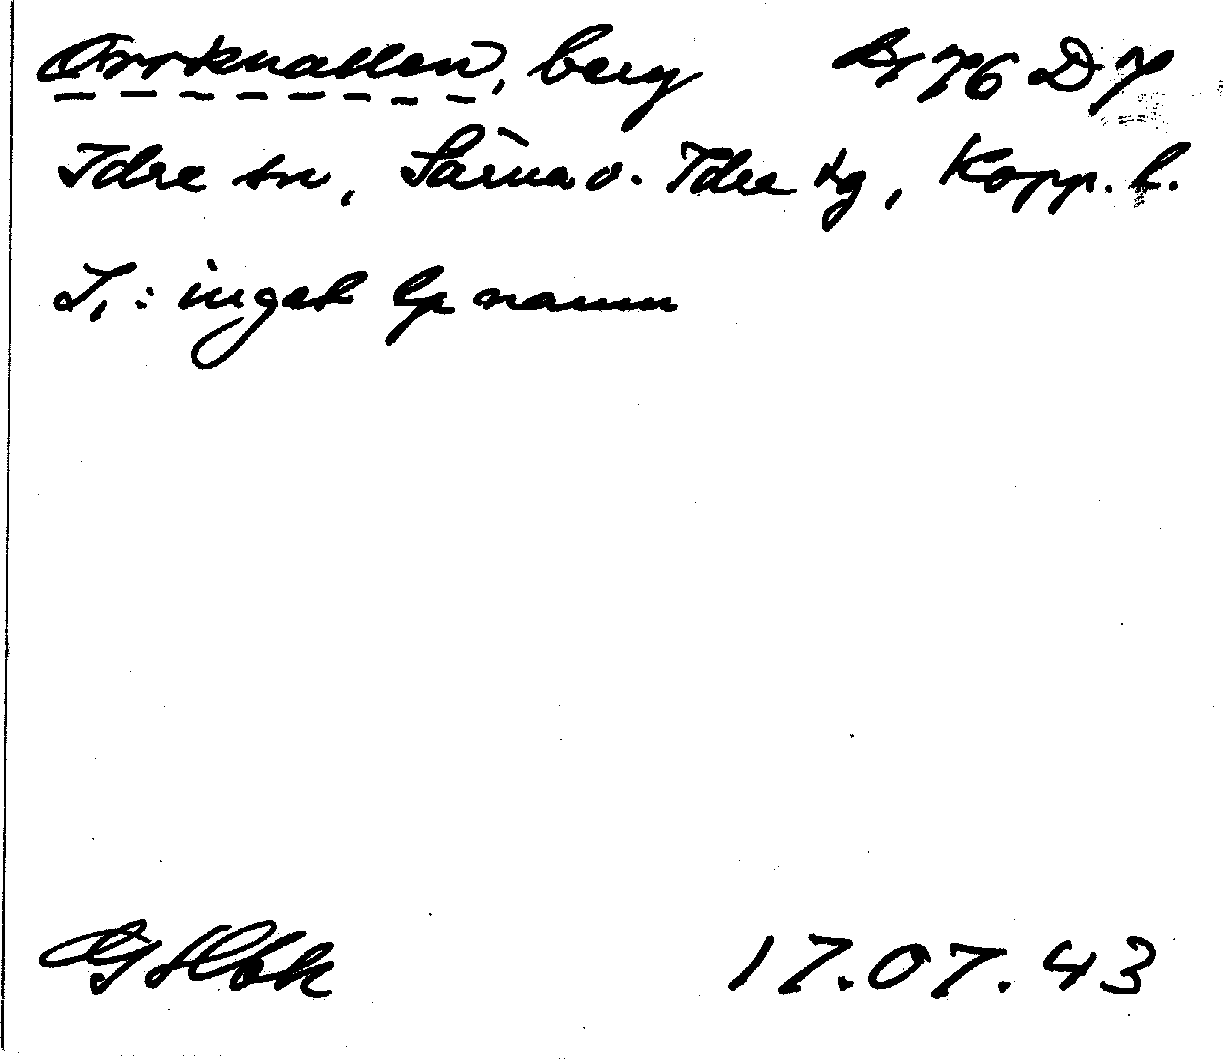 Orrknallen, berg Br 76 D 7
Idre sn, Särna o. Idre tg, Kopp. l.
J.: inget lp namn
17.07.43